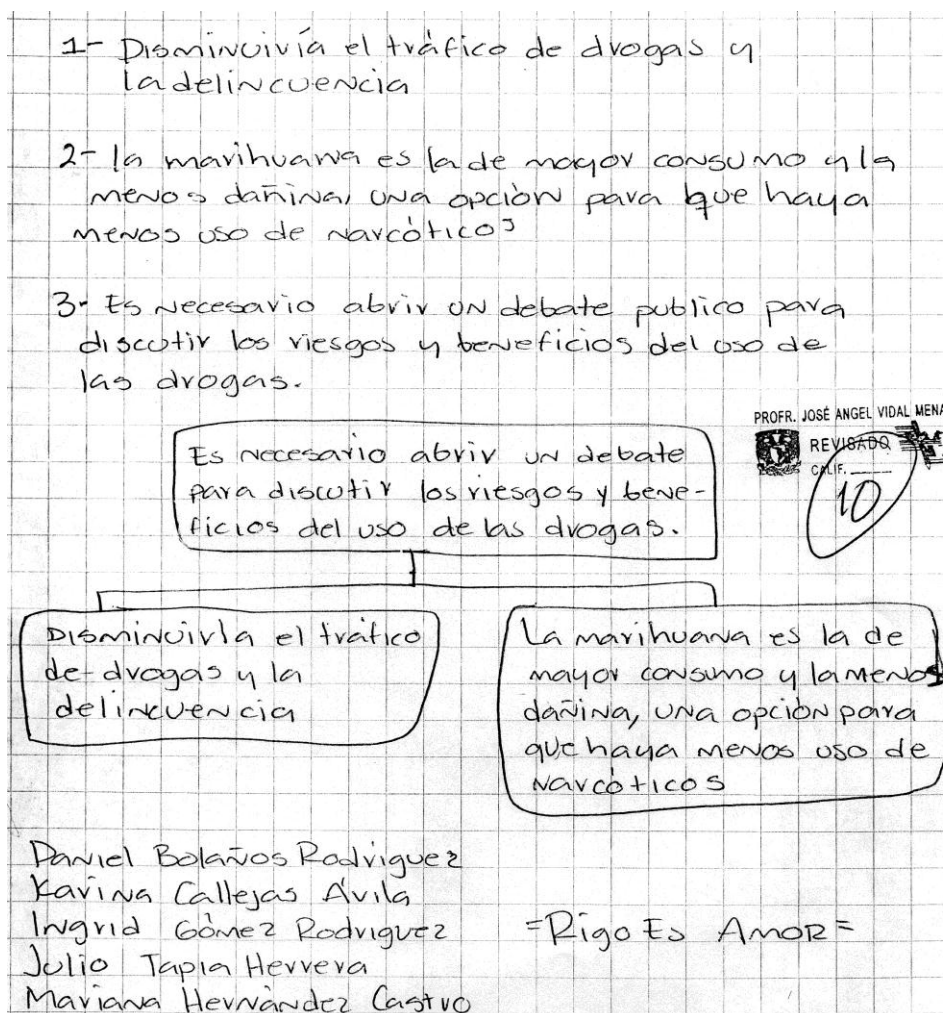 1- Disminuiría el tráfico de drogas y
la delincuencia
2- la marihuana es la de mayor consumo y la
menos dañina, una opción para que haya
menos uso de narcóticos
3- Es necesario abrir un debate publico para
discutir los riesgos y beneficios del uso de
las drogas.
PROFR. JOSÉ ANGEL VIDAL MENA
REVISADO
CALIF.
10
Es necesario abrir un debate
para discutir los riesgos y bene-
ficios del uso de las drogas.
Disminuiría el tráfico
de drogas y la
delincuencia
La marihuana es la de
mayor consumo y la menos
dañina, una opción para
que haya menos uso de
narcóticos
Daniel Bolaños Rodriguez
Karina Callejas Ávila
Ingrid Gómez Rodriguez
=Rigo Es Amor=
Julio Tapia Herrera
Mariana Hernández Castro